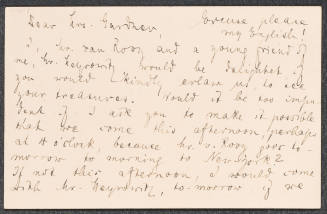 Dear Mrs. Gardner, Excuse please
my English!
I, Mr. van Rooy and a young friend of
me, Mr. Heyrowitz would be delighted if
you would kindly erlaub us, to see
your treasures. Would it be too impu-
dent if I ask you to make it possible
that we come this afternoon, perhaps
at 4 o'clock, because Mr. v. Rooy goes to-
morrow to morning to New York?
If not this afternoon, I would come
with Mr. Heyrowitz, to-morrow if we